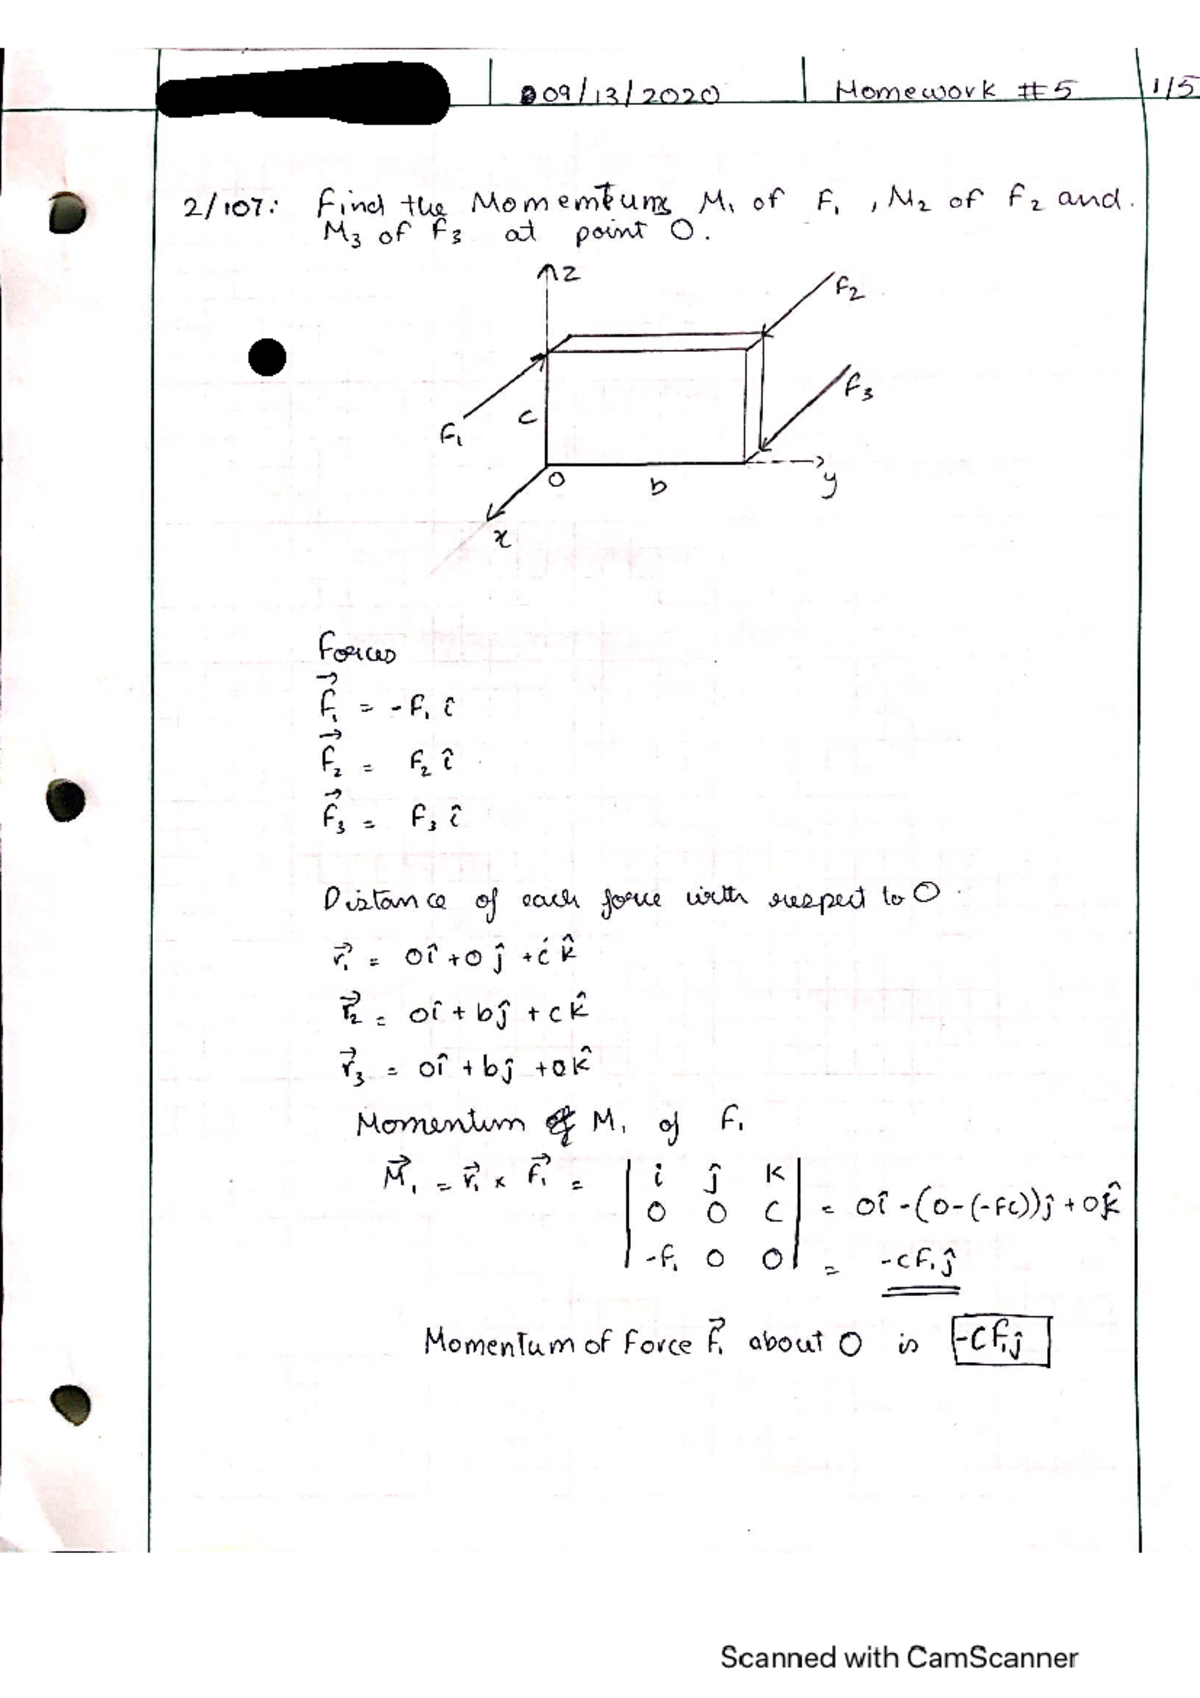 09/13/2020 Homework #5 1/5
2/107: Find the Momemtums M₁ of F₁, M₂ of F₂ and.
M₃ of F₃ at point O.
z
F₂
F₃
c
F₁
O b y
x
Forces
F⃗₁ = -F₁ î
F⃗₂ = F₂ î
F⃗₃ = F₃ î
Distance of each force with respect to O.
r⃗₁ = 0î + 0ĵ + ck̂
r⃗₂ = 0î + bĵ + ck̂
r⃗₃ = 0î + bĵ + 0k̂
Momentum of M₁ of F₁
M⃗₁ = r⃗₁ × F⃗₁ = | i ĵ k |
| 0 0 C | = 0î - (0-(-FC))ĵ + 0k̂
| -F₁ 0 0 | = -CF₁ĵ
Momentum of Force F⃗₁ about O is -CF₁ĵ
Scanned with CamScanner